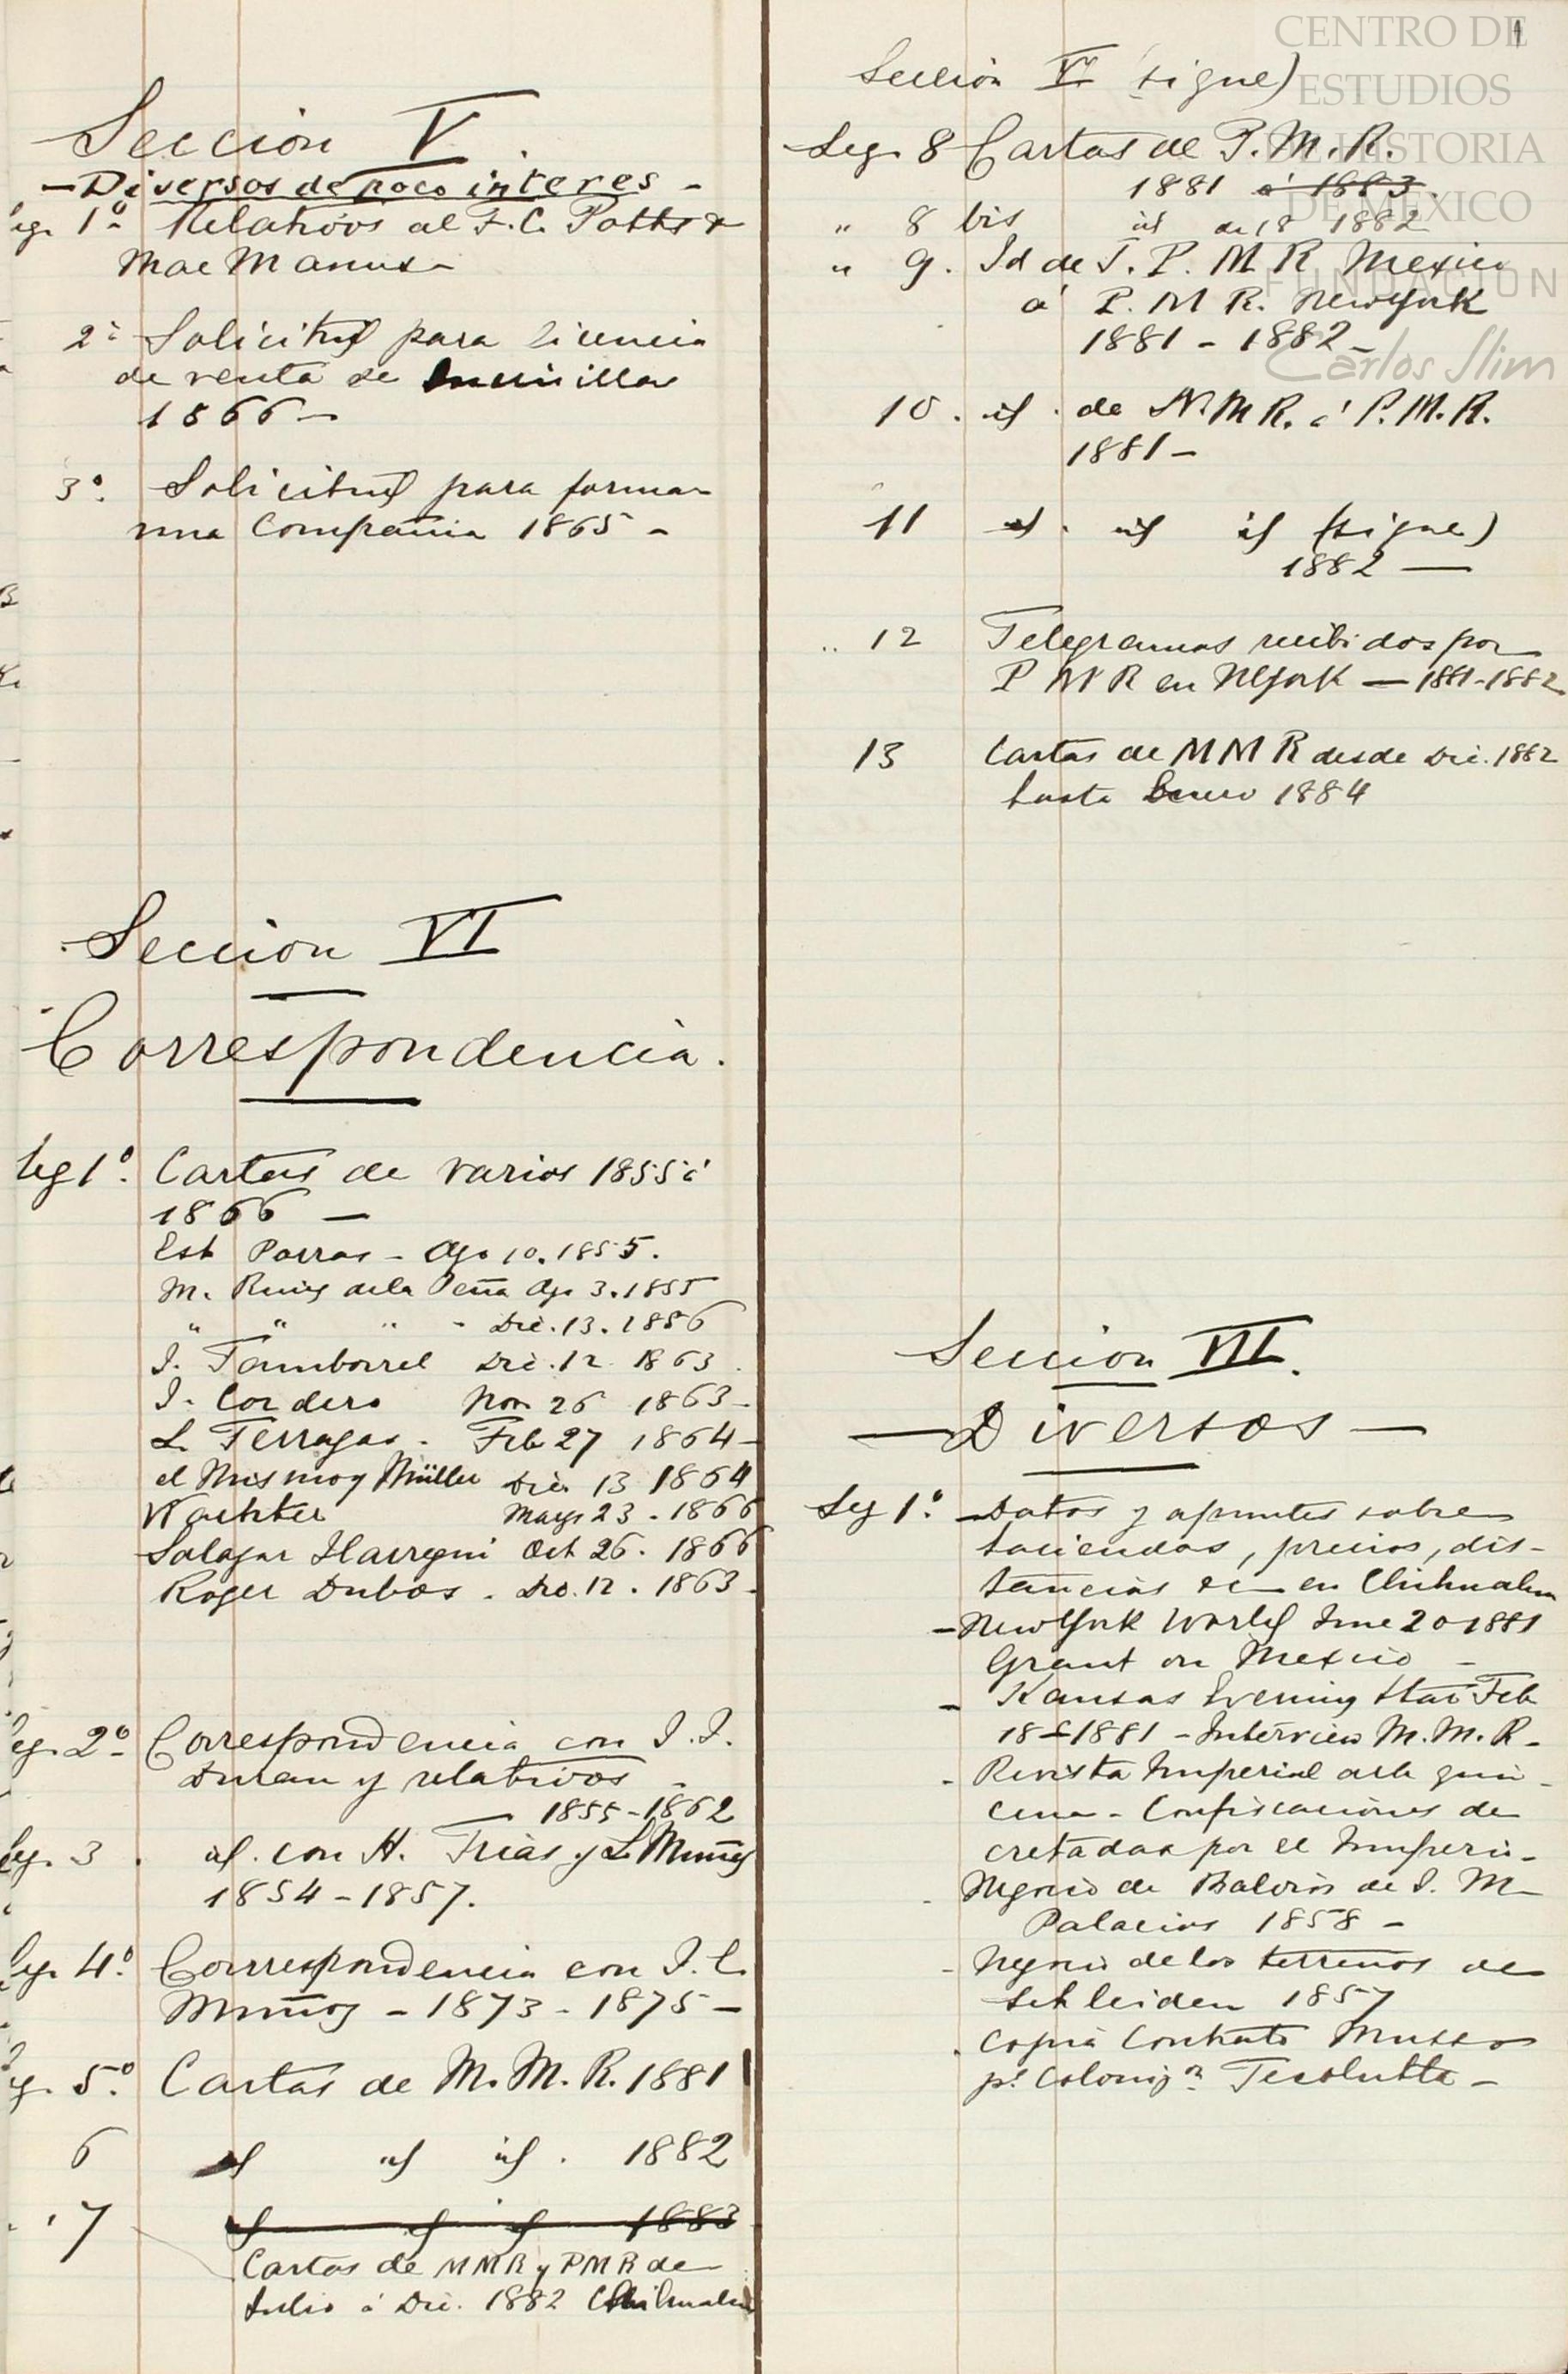 Seccion V.
- Diversos de poco interes -
eg. 1º Relativos al F. C. Potts &
Mac Manus -
2º Solicitud para licencia
de venta de
1866 -
3º. Solicitud para formar
una Compañia 1865 -
Seccion VI
Correspondencia.
Leg 1º. Cartas de varios 1855 á
1866 -
Est Porras - Ago 10. 1855.
M. Ruiz de la Peña Ago 3. 1855
" " " - Dic. 13. 1856
J. Tamborrel Dic. 12 1863.
J. Cordero Nov 26 1863 -
L. Terrazas - Feb 27 1864 -
el Mismo y Müller Dic 13 1864
Mayo 23 - 1866
Salazar Ilarregui Oct 26. 1866
Roger Dubos. Dic. 12. 1863.
eg. 2º Correspondencia con J. J.
Duran y relativos -
1855 - 1862
Leg. 3. id. con A. Trias y L. Muñoz
1854 - 1857.
Leg. 4º. Correspondencia con J. C.
Muñoz - 1873 - 1875 -
eg. 5º. Cartas de M. M. R. 1881
6 id id id. 1882
7 id id id 1883
Cartas de MMR y PMR de
Julio á Dic. 1882 Chihuahua
1
Seccion VI (sigue)
Leg. 8 Cartas de P. M. R.
1881 á 1883.
" 8 bis id de 1882
" 9. Id de J. P. M R Mexico
á P. M R. New York
1881 - 1882 -
10. id. de M M R. á P. M. R.
1881 -
11 id. id id (sigue)
1882 —
.. 12 Telegramas recibidos por
P M R en N York — 1881-1882
13 Cartas de M M R desde Dic. 1882
hasta Enero 1884
Seccion VII.
— Diversos —
Leg 1º. - Datos y apuntes sobre
haciendas, precios, dis-
tancias &c - en Chihuahua
- New York World June 20 1881
Grant on Mexico -
- Kansas Evening Star Feb
18 - 1881 - Interview M. M. R -
- Revista Imperial de la quin-
cena - Confiscaciones de
cretadas por el Imperio -
- Negocio de de J. M
Palacios 1858 -
- Negocio de los terrenos de
Schleiden 1857
. Copia Contrato
pª Colonizn
CENTRO DE
ESTUDIOS
DE HISTORIA
DE MÉXICO
FUNDACIÓN
Carlos Slim